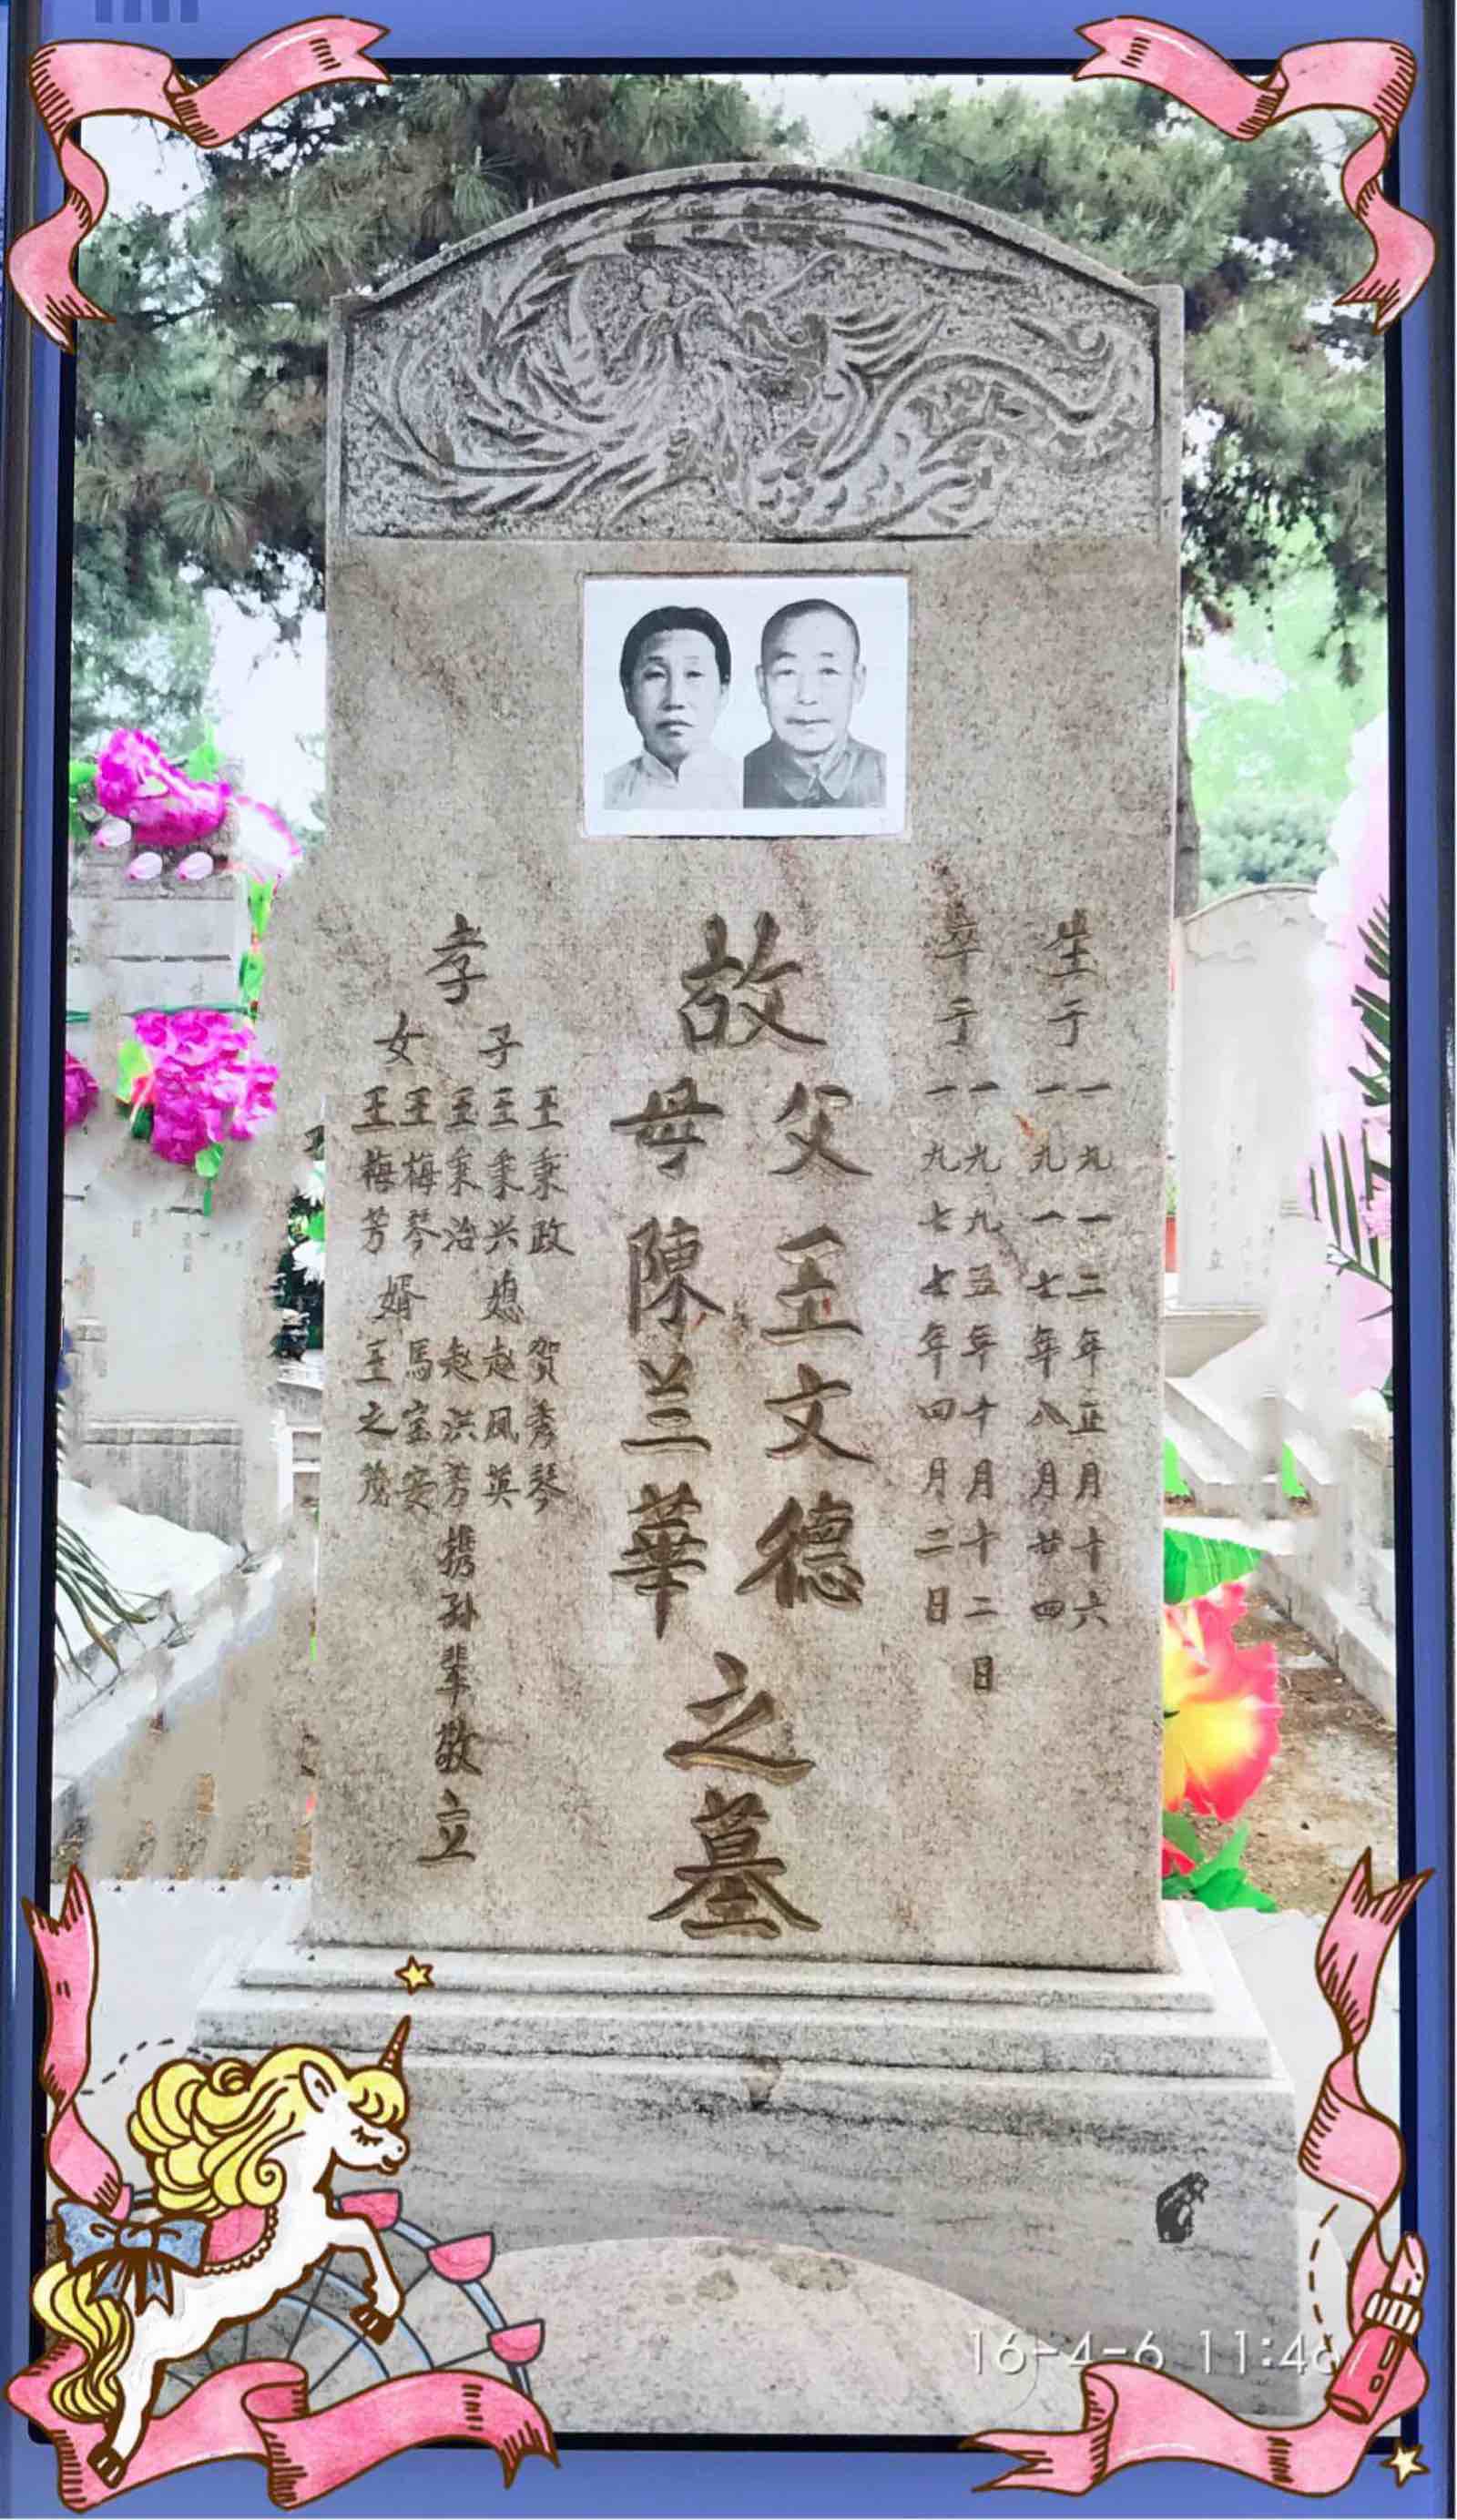 生于一九一二年正月十六
一九一七年八月廿四
卒于一九九五年十月十二日
一九七七年四月二日
故
父王文德
母陳兰華
之墓
孝
子
王秉政
王秉兴
王秉治
媳
贺秀琴
赵凤英
赵洪芳
女
王梅琴
王梅芳
婿
馬宝安
王之茂
携孙辈敬立
16-4-6 11:46